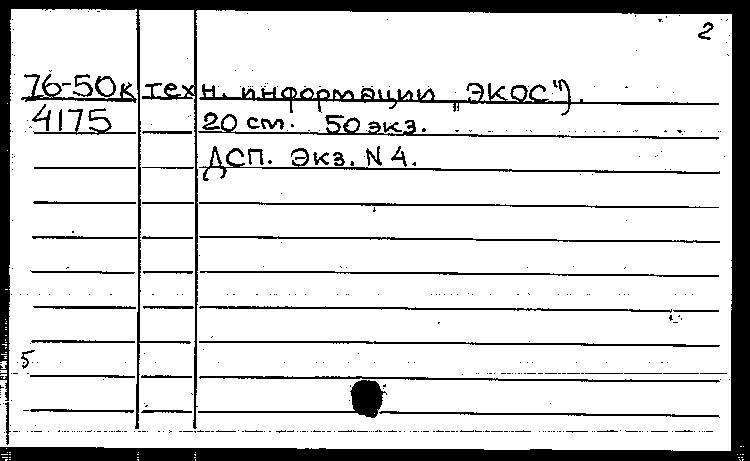 2
76-50к техн. информации „ЭКОС").
4175 20 см. 50 экз.
ДСП. Экз. N 4.
5